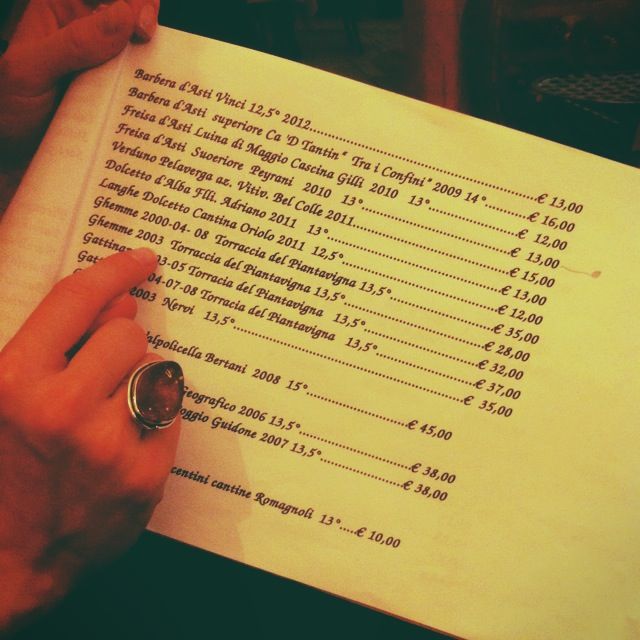 Barbera d'Asti Vinci 12,5° 2012........€ 13,00
Barbera d'Asti superiore Ca 'D Tantin" Tra i Confini" 2009 14°........€ 16,00
Freisa d'Asti Luina di Maggio Cascina Gilli 2010 13°........€ 12,00
Freisa d'Asti Suoeriore Peyrani 2010 13°........€ 13,00
Verduno Pelaverga az. Vitiv. Bel Colle 2011........€ 15,00
Dolcetto d'Alba Flli. Adriano 2011 13°........€ 13,00
Langhe Dolcetto Cantina Oriolo 2011 12,5°........€ 12,00
Ghemme 2000-04- 08 Torraccia del Piantavigna 13,5°........€ 35,00
Ghemme 2003 Torraccia del Piantavigna 13,5°........€ 28,00
03-05 Torracia del Piantavigna 13,5°........€ 32,00
04-07-08 Torracia del Piantavigna 13,5°........€ 37,00
2003 Nervi 13,5°........€ 35,00
Valpolicella Bertani 2008 15°........€ 45,00
Geografico 2006 13,5°........€ 38,00
oggio Guidone 2007 13,5°........€ 38,00
centini cantine Romagnoli 13°....€ 10,00